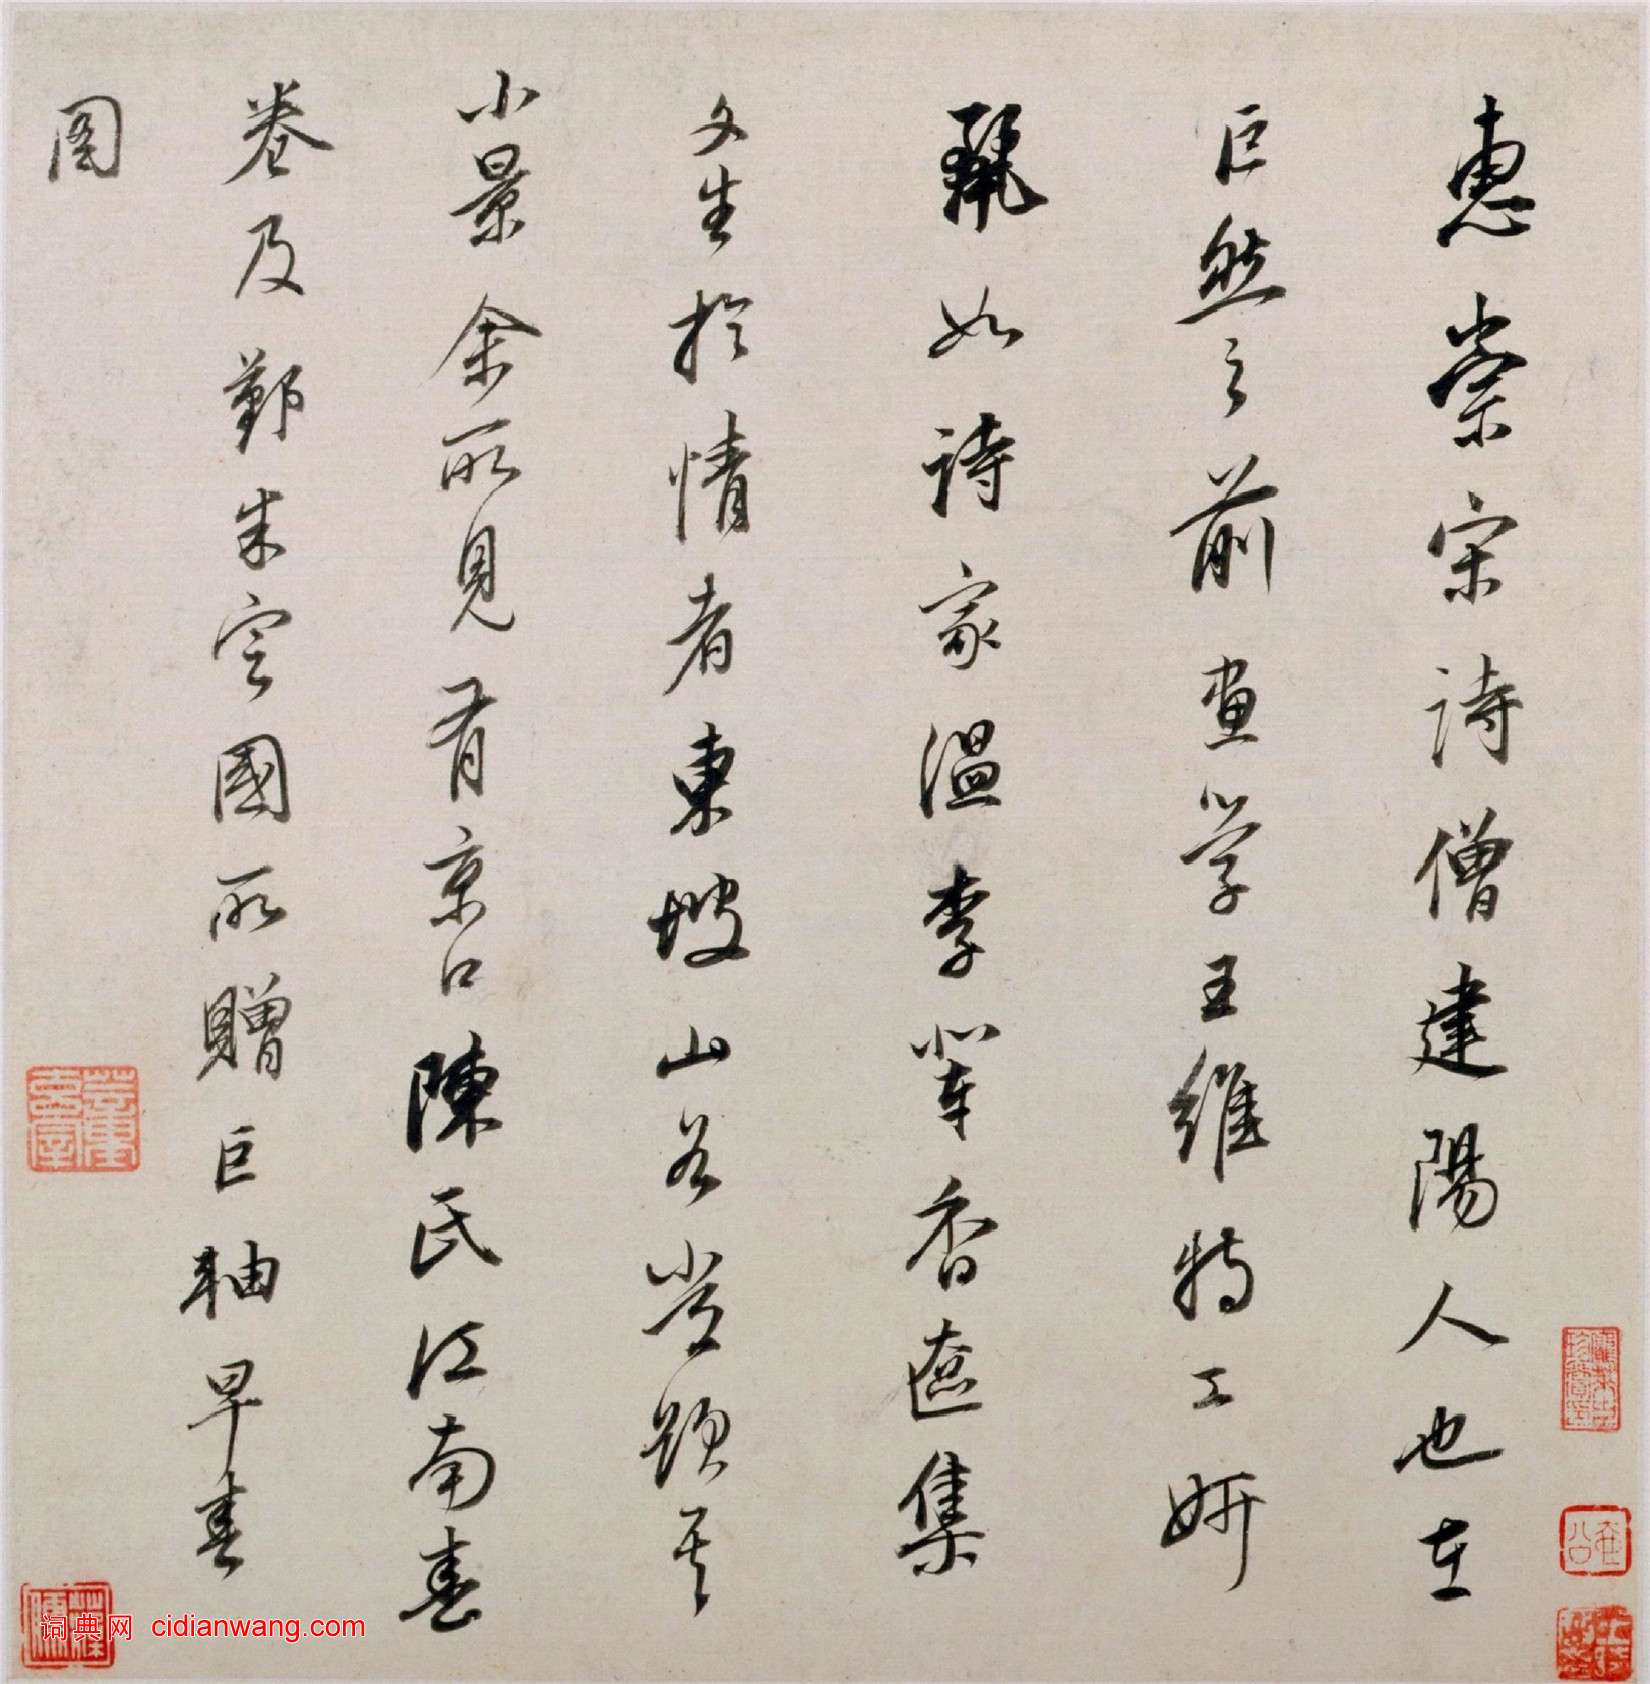 惠崇宋詩僧建陽人也在
巨然之前畫學王維特工妍
麗如詩家溫李輩香奩集
文生於情者東坡山谷嘗題其
小景余所見有京口陳氏江南春
卷及鄞朱定國所贈巨軸早春
圖
词典网 cidianwang.com